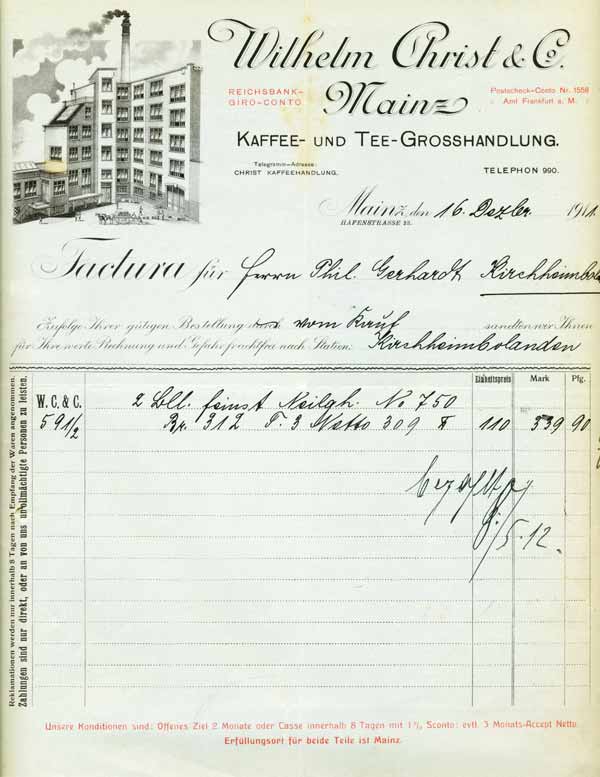 Wilhelm Christ & Co.
Mainz
REICHSBANK-
GIRO-CONTO
Postscheck-Conto Nr. 1558
Amt Frankfurt a. M.
KAFFEE- UND TEE-GROSSHANDLUNG.
Telegramm-Adresse:
CHRIST KAFFEEHANDLUNG.
TELEPHON 990.
Mainz, den 16. Dezbr. 1911.
HAFENSTRASSE 13.
Factura für Herrn Phil. Gerhardt Kirchheimbola
Zufolge Ihrer gütigen Bestellung durch vom Kauf sandten wir Ihnen
für Ihre werte Rechnung und Gefahr frachtfrei nach Station: Kirchheimbolanden
Einheitspreis Mark Pfg.
W. C. & C. 2 Bll. feinst No 750
591/2 Br. 312 T. 3 Netto 309 110 339 90
5.12.
Reklamationen werden nur innerhalb 8 Tagen nach Empfang der Waren angenommen.
Zahlungen sind nur direkt, oder an von uns bevollmächtigte Personen zu leisten.
Unsere Konditionen sind: Offenes Ziel 2 Monate oder Casse innerhalb 8 Tagen mit 1% Sconto: evtl. 3 Monats-Accept Netto.
Erfüllungsort für beide Teile ist Mainz.